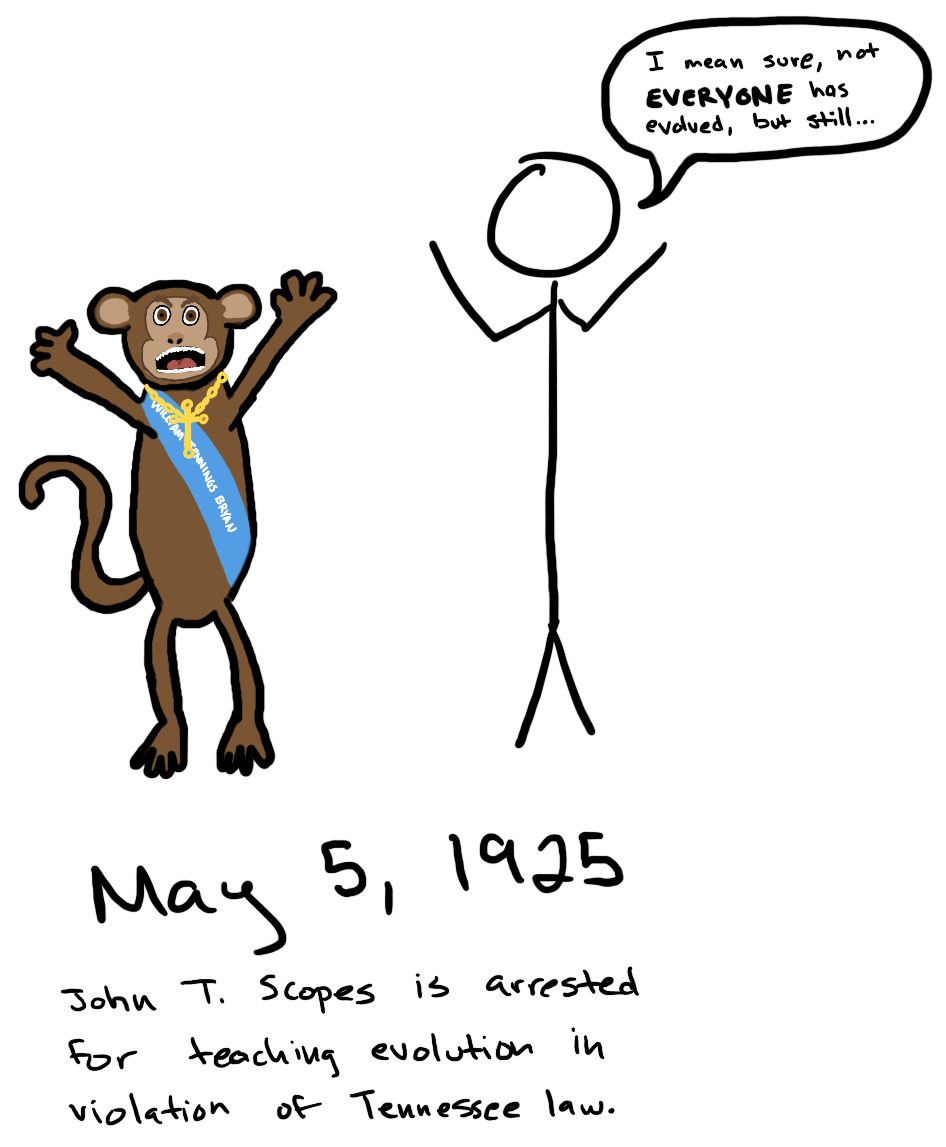 I mean sure, not
EVERYONE has
evolved, but still...
WILLIAM JENNINGS BRYAN
May 5, 1925
John T. Scopes is arrested
for teaching evolution in
violation of Tennessee law.